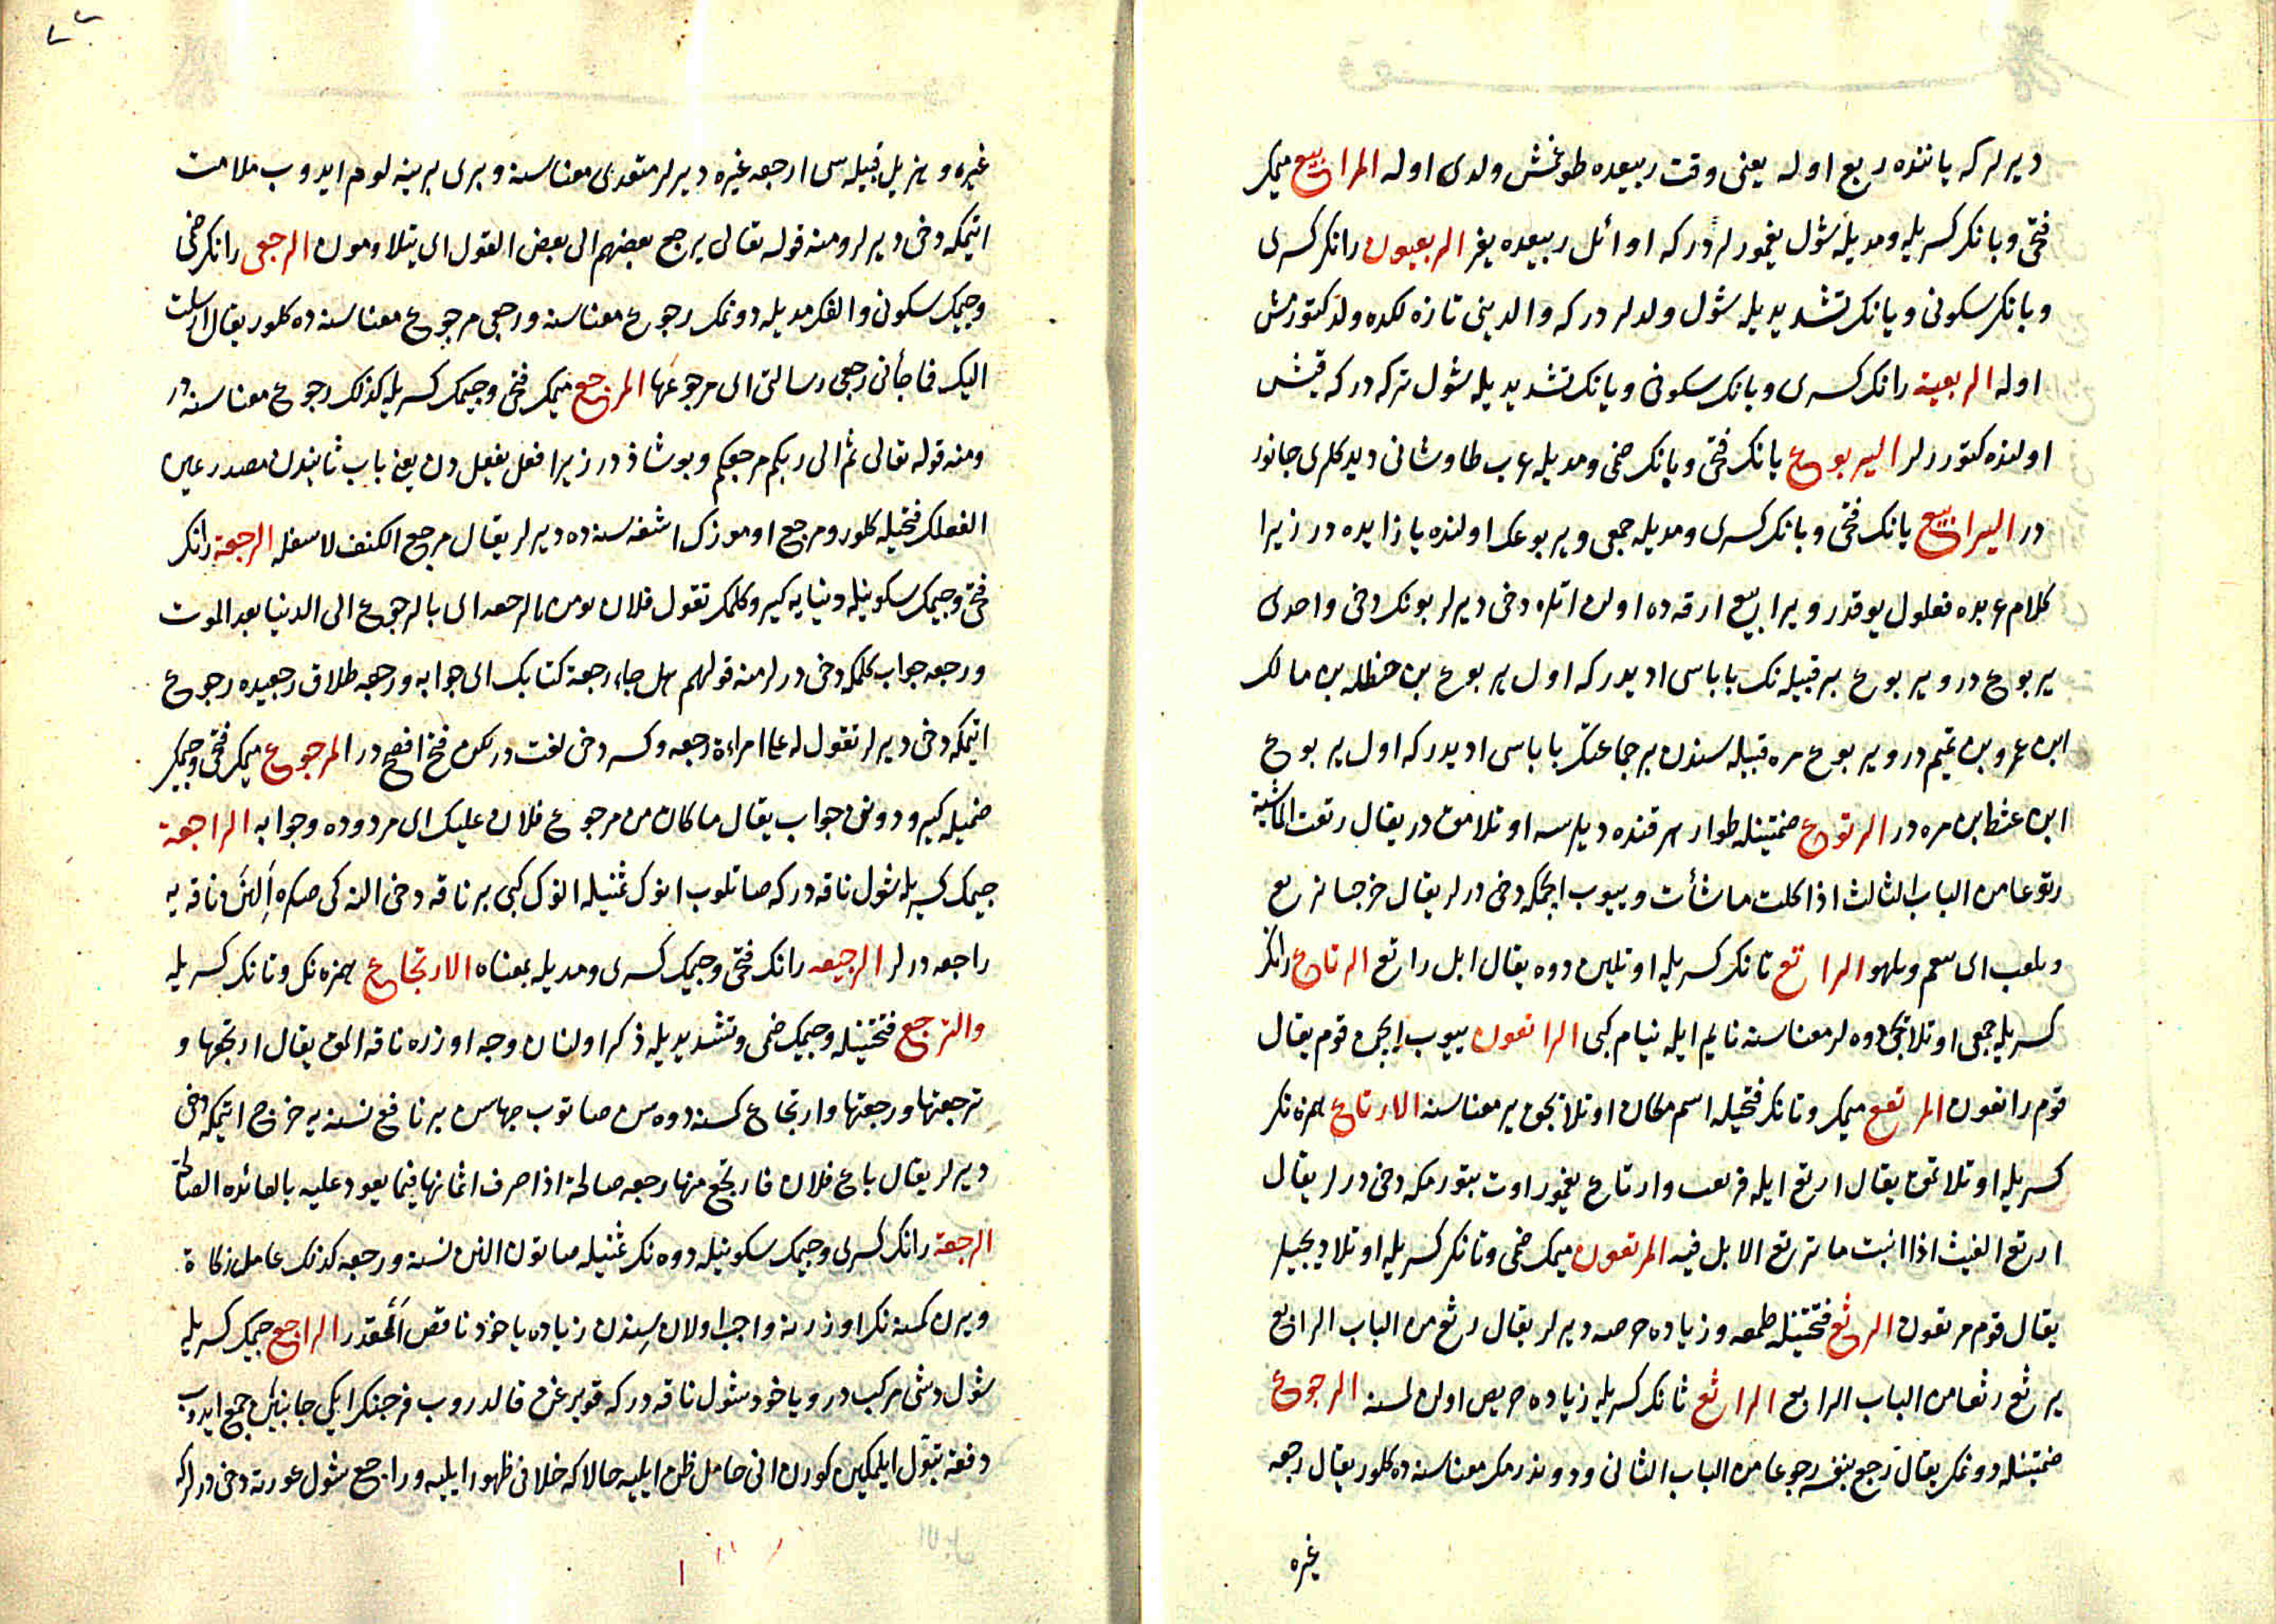 ديرلر كه ياننده ربع اوله يعنى وقت ربيعده طوغمش ولدى اوله المرابيع ميمك
فتحى وبانك كسريله ومديله شول يغمورلردر كه اوائل ربيعده يغر الربعيون رانك كسرى
وبانك سكونى ويانك تشديديله شول ولدلردركه والدينى تازه لكده ولد كتورمش
اوله الربعية رانك كسرى وبانك سكونى ويانك تشديديله شول تركه دركه قيش
اولنده كتوررلر اليربوع يانك فتحى وبانك ضمى ومديله عرب طاوشانى ديدكلرى جانور
در اليرابيع يانك فتحى وبانك كسرى ومديله جمعى ويربوعك اولنده يا زايده در زيرا
كلام عربده فعلول يوقدر ويرابيع ارقه ده اولن اتلره دخى ديرلر بونك دخى واحدى
يربوع در ويربوع بر قبيله نك باباسى اديدركه اول يربوع بن حنظله بن مالك
ابن عمرو بن تميم در ويربوع مره قبيله سندن بر جماعتك باباسى اديدركه اول يربوع
ابن غيط بن مره در الرتوع ضمتينله طوار هر قنده ديلرسه اوتلامق در يقال رتعت الماشية
رتوعا من الباب الثالث اذا اكلت ما شأت وييوب ايچمكه دخى درلر يقال خرجنا نرتع
ونلعب اى ننعم ونلهو الراتع تانك كسريله اوتلين دوه يقال ابل راتع الرتاع رانك
كسريله جمعى اوتلايجى دوه لر معناسنه نايم ايله نيام كبى الراتعون ييوب ايچن قوم يقال
قوم راتعون المرتع ميمك وتانك فتحيله اسم مكان اوتلانجق ير معناسنه الارتاع همزه نك
كسريله اوتلاتمق يقال ارتع ابله فرتعت وارتاع يغمور اوت بتورمكه دخى درلر يقال
ارتع الغيث اذا انبت ما ترتع الابل فيه المرتعون ميمك ضمى وتانك كسريله اوتلاديجيلر
يقال قوم مرتعون الرثع فتحتينله طمعه وزياده حرصه ديرلر يقال رثع من الباب الرابع
يرثع رثعا من الباب الرابع الراثع ثانك كسريله زياده حريص اولن كمسنه الرجوع
ضمتينله دونمك يقال رجع بنفسه رجوعا من الباب الثانى ودوندرمك معناسنه ده كلور يقال رجعه
غيره
غيره وهذيل قبيله سى ارجعه غيره ديرلر متعدى معناسنه وبرى برينه لوم ايدوب ملامت
اتيمكه دخى ديرلر ومنه قوله تعالى يرجع بعضهم الى بعض القول اى يتلاومون الرجعى رانك ضمى
وجيمك سكونى والفك مديله دونمك رجوع معناسنه ورجعى مرجوع معناسنه ده كلور يقال ارسلت
اليك فما جأنى رجعى رسالتى اى مرجوعها المرجع ميمك فتحى وجيمك كسريله كذلك رجوع معناسنه در
ومنه قوله تعالى ثم الى ربكم مرجعكم وبو شاذدر زيرا فعل يفعل دن يعنى باب ثانيدن مصدر عين
الفعلك فتحيله كلور ومرجع اوموزك اشغه سنه ده ديرلر يقال مرجع الكتف لاسفله الرجعة رانك
فتحى وجيمك سكونيله دنيايه كيرو كلمك تقول فلان يومن بالرجعه اى بالرجوع الى الدنيا بعد الموت
ورجعه جواب كلمكه دخى درلر منه قولهم هل جاء رجعة كتابك اى جوابه ورجعه طلاق رجعيده رجوع
اتيمكه دخى ديرلر تقول له على امراءة رجعه وكسر دخى لغت در لكن فتح افصح در المرجوع ميمك فتحى وجيمك
ضميله كيرو دونن جواب يقال ما كان من مرجوع فلان عليك اى مردوده وجوابه الراجعة
جيمك كسريله شول ناقه دركه صاتلوب انوك ثمنيله انوك كبى بر ناقه دخى النه كى صكره النن ناقه يه
راجعه درلر الرجيعه رانك فتحى وجيمك كسرى ومديله بمعناه الارتجاع همزه نك وتانك كسريله
والترجع فتحتينله وجيمك ضمى وتشديديله ذكر اولنان وجه اوزره ناقه المق يقال ارتجعها و
ترجعتها ورجعتها وارتجاع كسنه دوه سن صاتوب بهاسن بر نافع نسنه يه خرج اتيمكه دخى
ديرلر يقال باع فلان فارتجع منها رجعه صالحة اذا صرف اثمانها فيما يعود عليه بالعائده الصالحة
الرجعة رانك كسرى وجيمك سكونيله دوه نك ثمنيله صاتون النن نسنه ورجعه كذلك عامل زكاة
ويرن كمسنه نك اوزرنه واجب اولان سندن زياده ياخود ناقص المقدر الراجع جيمك كسريله
شول دشى مركب در وياخود شول ناقه دركه قويرغن قالدروب فرجنك ايكى جانبلرن جمع ايدوب
دفعه تبول ايلمكين كورن انى حامل ظن ايليه حالاكه خلافى ظهور ايليه وراجع شول عورته دخى درلركه